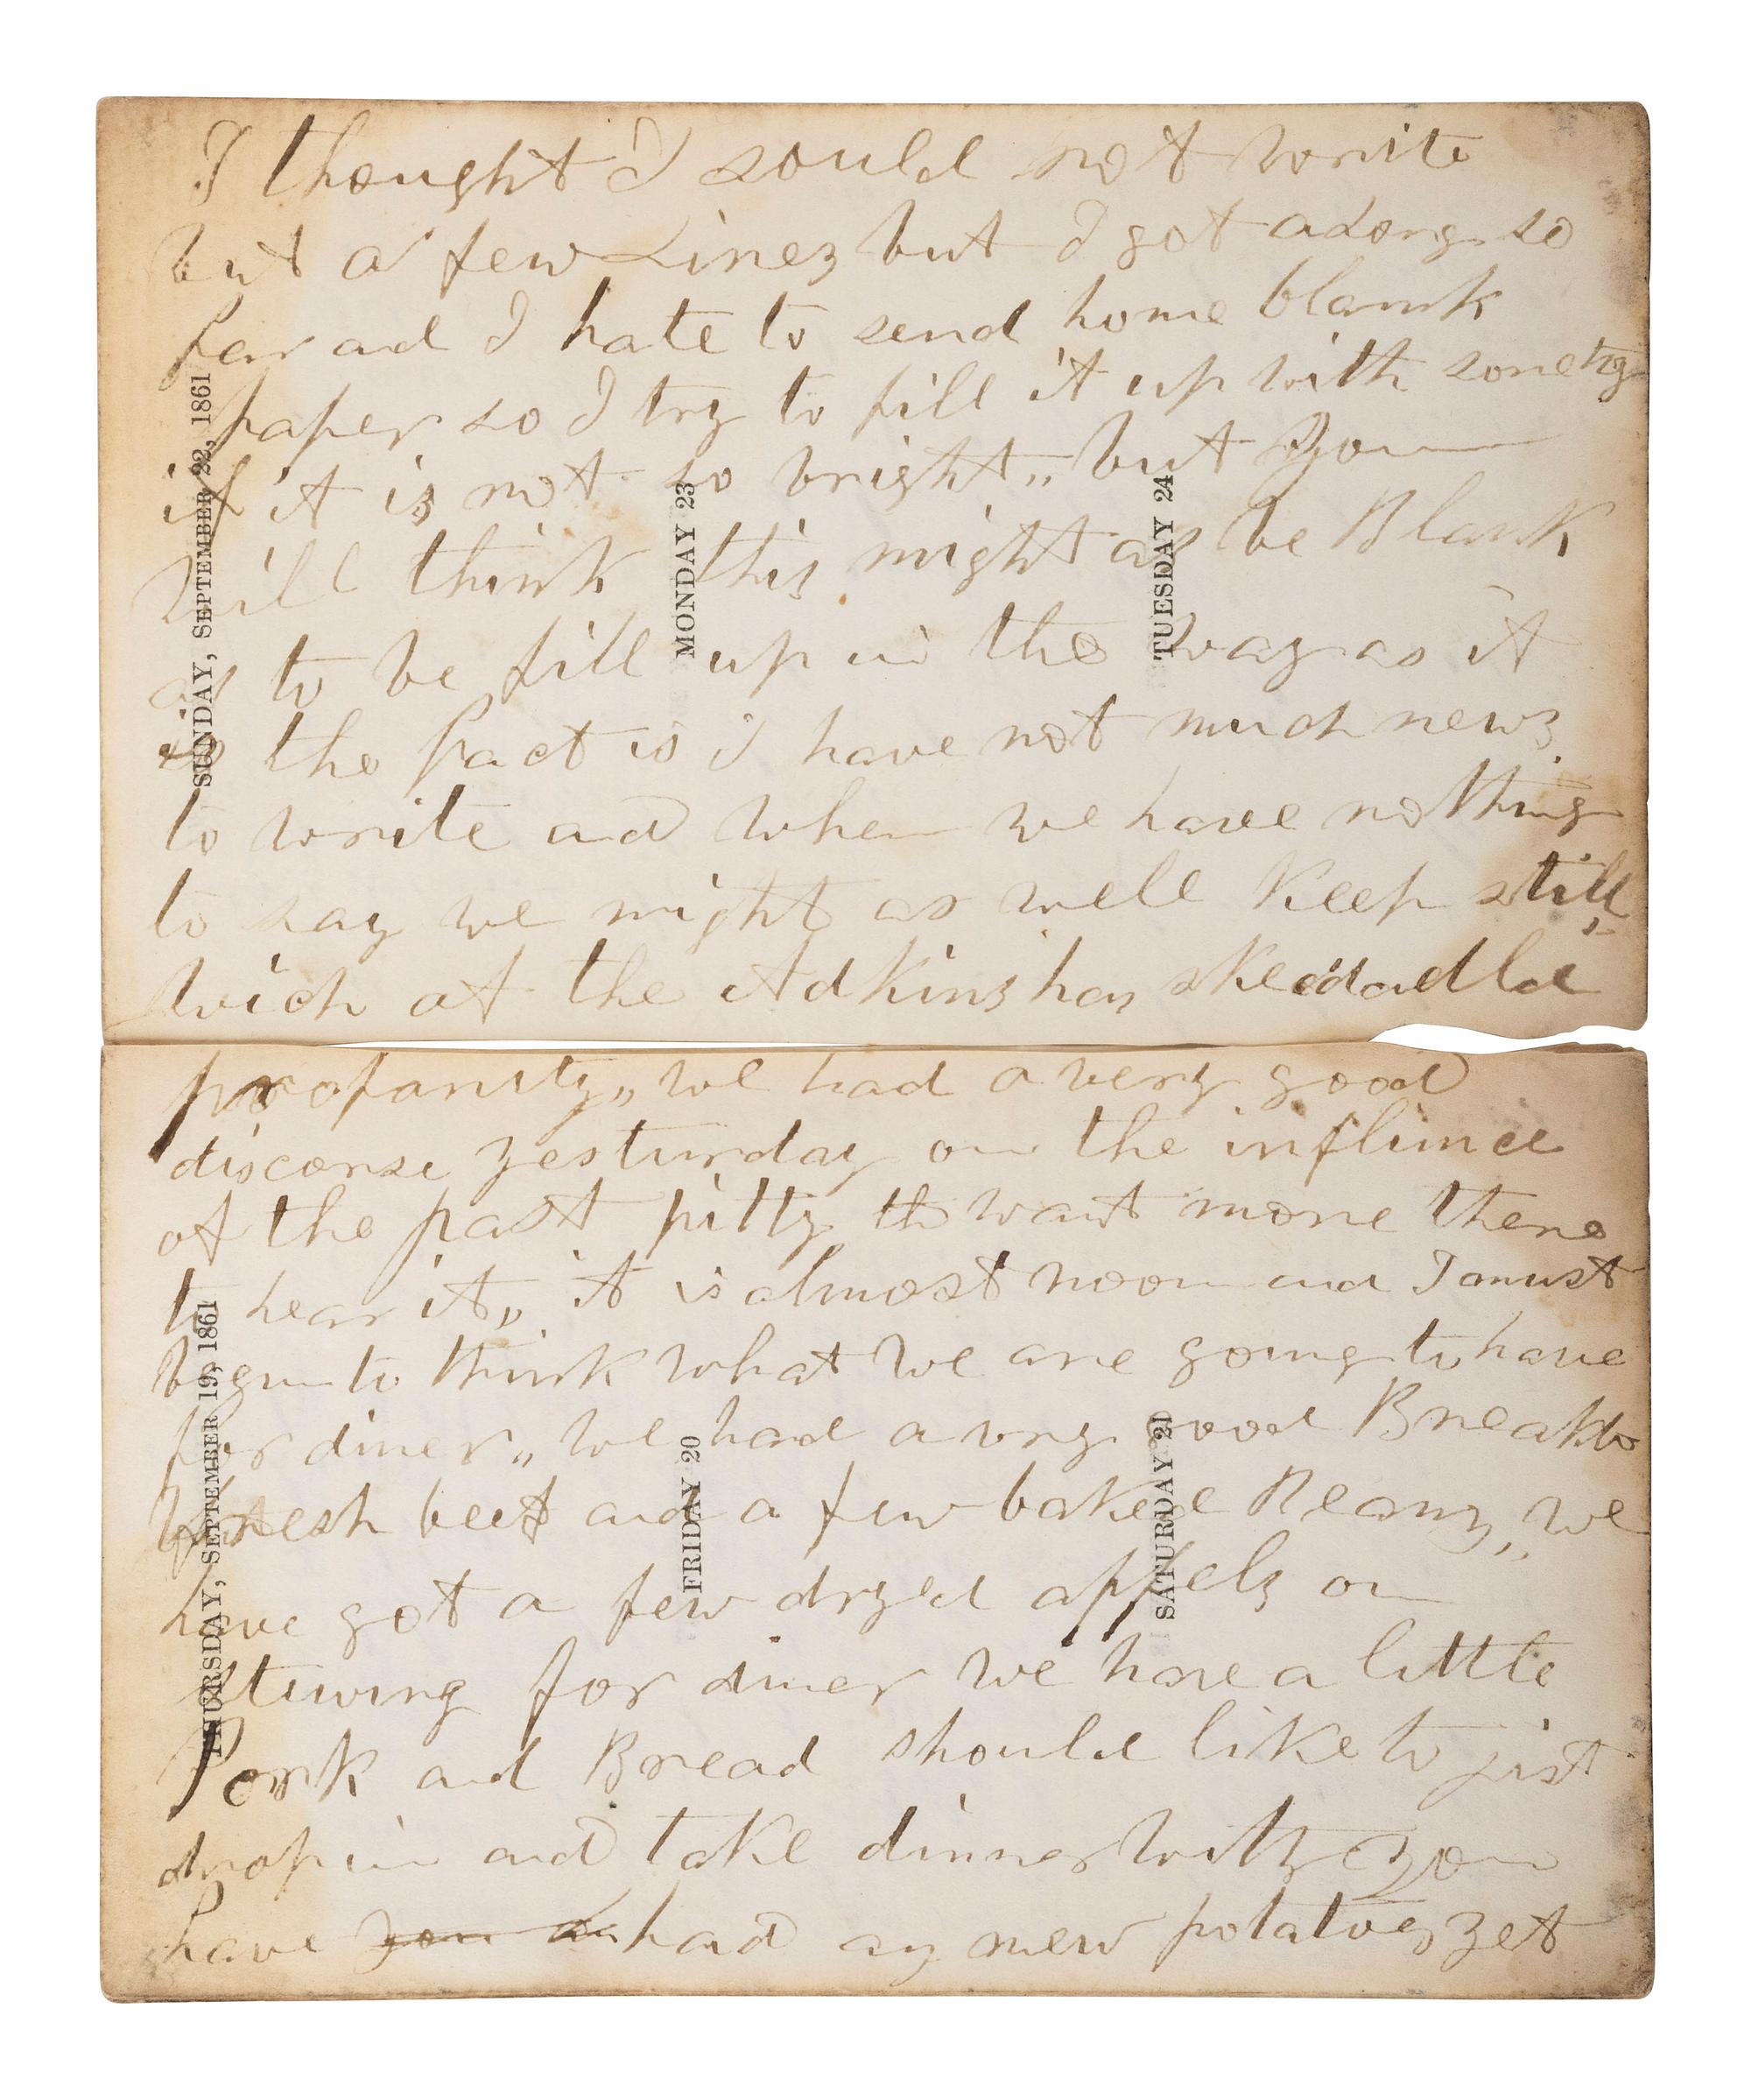 I thought I sould not write
but a few Linez but I got aLong so
far and I hate to send home blank
paper so I try to fill it up with
if it is not so bright,, but you
will think this might as be Blank
as to be fill up in the way as it
is the fact is I have not much news
to write and when we have nothing
to say we might as well Keep still
wich at the Adkins has skedadle
SUNDAY, SEPTEMBER 22, 1861
MONDAY 23
TUESDAY 24
profanity,, we had a very good
discorse yesturday on the
of the past pitty th want more there
to hear it,, it is almost noon and I must
begin to think what we are going to have
for diner,, we had a very good
fresh beef and a few baked Beanz,, we
have got a few dryed appelz on
stuwing for diner we have a little
Pork and Bread should like to jist
drop in and take dinner with you
have had any new potatoes yet
THURSDAY, SEPTEMBER 19, 1861
FRIDAY 20
SATURDAY 21